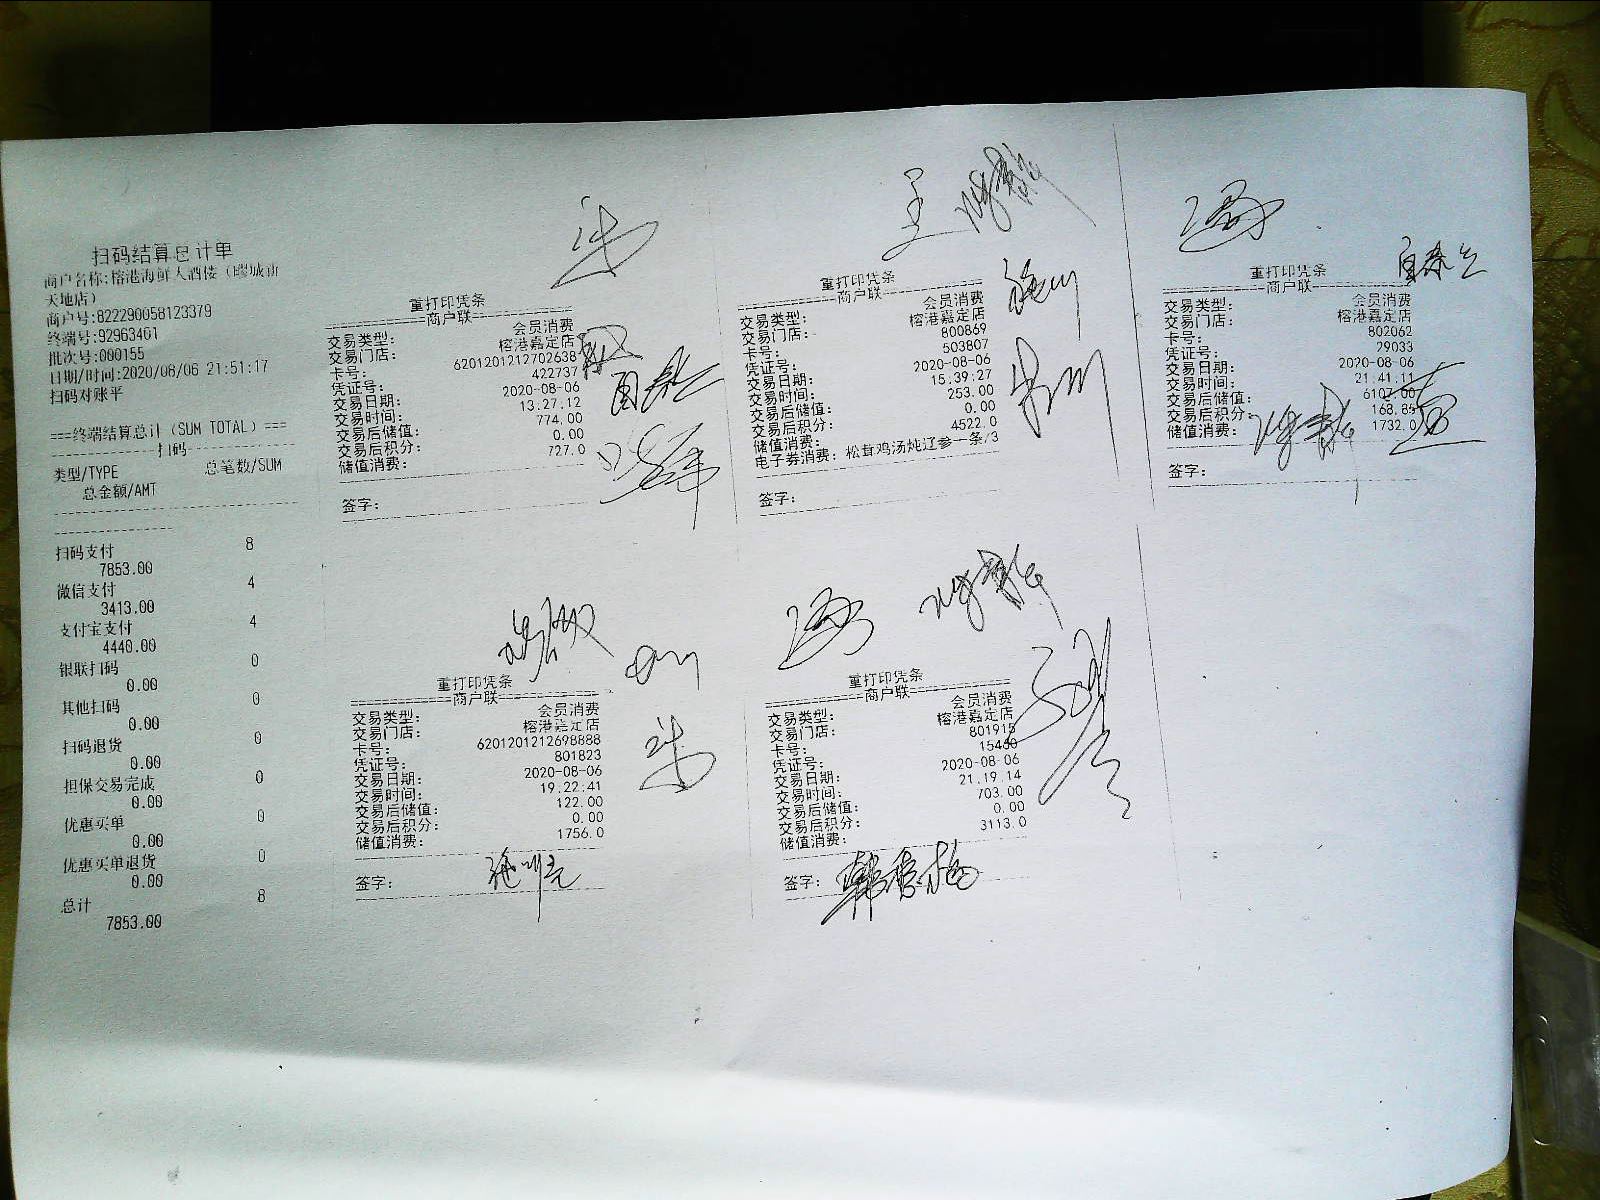 扫码结算总计单
商户名称:榕港海鲜大酒楼（疁城新
天地店）
商户号:822290058123379
终端号:92963401
批次号:000155
日期/时间:2020/08/06 21:51:17
扫码对账平
===终端结算总计（SUM TOTAL）===
扫码
类型/TYPE 总笔数/SUM
总金额/AMT
扫码支付 8
7853.00
微信支付 4
3413.00
支付宝支付 4
4440.00
银联扫码 0
0.00
其他扫码 0
0.00
扫码退货 0
0.00
担保交易完成 0
0.00
优惠买单 0
0.00
优惠买单退货 0
0.00
总计 8
7853.00
重打印凭条
商户联
交易类型: 会员消费
交易门店: 榕港嘉定店
卡号: 6201201212702638
凭证号: 422737
交易日期: 2020-08-06
交易时间: 13.27.12
交易后储值: 774.00
交易后积分: 0.00
储值消费: 727.0
签字:
重打印凭条
商户联
交易类型: 会员消费
交易门店: 榕港嘉定店
卡号: 800869
凭证号: 503807
交易日期: 2020-08-06
交易时间: 15.39.27
交易后储值: 253.00
交易后积分: 0.00
储值消费: 4522.0
电子券消费: 松茸鸡汤炖辽参一条/3
签字:
重打印凭条
商户联
交易类型: 会员消费
交易门店: 榕港嘉定店
卡号: 802062
凭证号: 29033
交易日期: 2020-08-06
交易时间: 21.41.11
交易后储值: 6107.00
交易后积分:
储值消费: 1732.0
签字:
重打印凭条
商户联
交易类型: 会员消费
交易门店: 榕港嘉定店
卡号: 6201201212698888
凭证号: 801823
交易日期: 2020-08-06
交易时间: 19.22.41
交易后储值: 122.00
交易后积分: 0.00
储值消费: 1756.0
签字:
重打印凭条
商户联
交易类型: 会员消费
交易门店: 榕港嘉定店
卡号: 801915
凭证号: 15460
交易日期: 2020-08-06
交易时间: 21.19.14
交易后储值: 703.00
交易后积分: 0.00
储值消费: 3113.0
签字: 韩秀梅